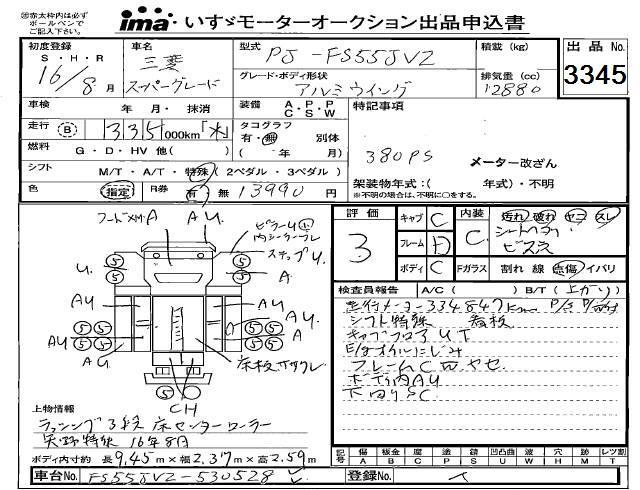 ㊟赤太枠内は必ず
ボールペンで
ご記入下さい。
ima いすゞモーターオークション出品申込書
初度登録
S・H・R
16/8月
車名
三菱
スーパーグレード
型式
PJ-FS55JVZ
グレード・ボディ形状
アルミウイング
積載(kg)
排気量(cc)
12880
出品No.
3345
車検
年 月・ 抹消
装備
A・P・P
C・S・W
特記事項
走行
B
335000km「水」
タコグラフ
有・無 別体
( 年 月)
燃料
G・D・HV 他( )
380PS
メーター改ざん
シフト
M/T・A/T・特殊(2ペダル・3ペダル)
架装物年式:( 年式)・不明
※不明の場合は、不明に○をする。
色
指定
R券
有 無 13990円
評価
3
キャブ C
フレーム D
ボディ C
内装
C
汚れ 破れ ヤニ スレ
シートヘタリ
ビス穴
Fガラス
割れ 線 点傷 イバリ
フードメXM.A
AU
ピラーU小
内シーラーフレ
ステップU
U.
5
5
5
5
A
AU
AU
AU
AU
A
床板ササクレ
5
CH
検査員報告 A/C( ) B/T(上がり)
走行メーター334847km P/S P/W付
シフト特殊 看板
キャブフロアUT
E/gオイルにじみ
フレームC凹ヤセ
ボディ内AU
下回りSC
上物情報
ラッシング3段 床センターローラー
矢野特殊 16年8月
ボディ内寸約 長9.45m×幅2.37m×高2.59m
記号
傷 板金 度 塗 錆 凹 凸凹曲 波 穴 跡 レツ割
A B C P S U W H M T
車台No. FS55JVZ-530528
登録No.